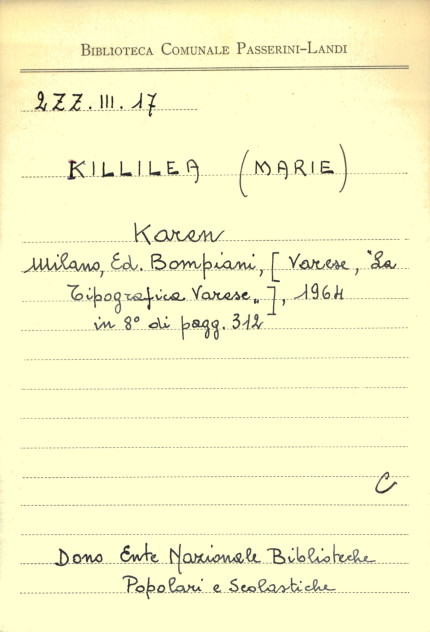 BIBLIOTECA COMUNALE PASSERINI-LANDI
2ZZ.III.17
KILLILEA (MARIE)
Karen
Milano, Ed. Bompiani, [Varese, "La
Tipografica Varese„], 1964
in 8° di pagg. 312
C
Dono Ente Nazionale Biblioteche
Popolari e Scolastiche